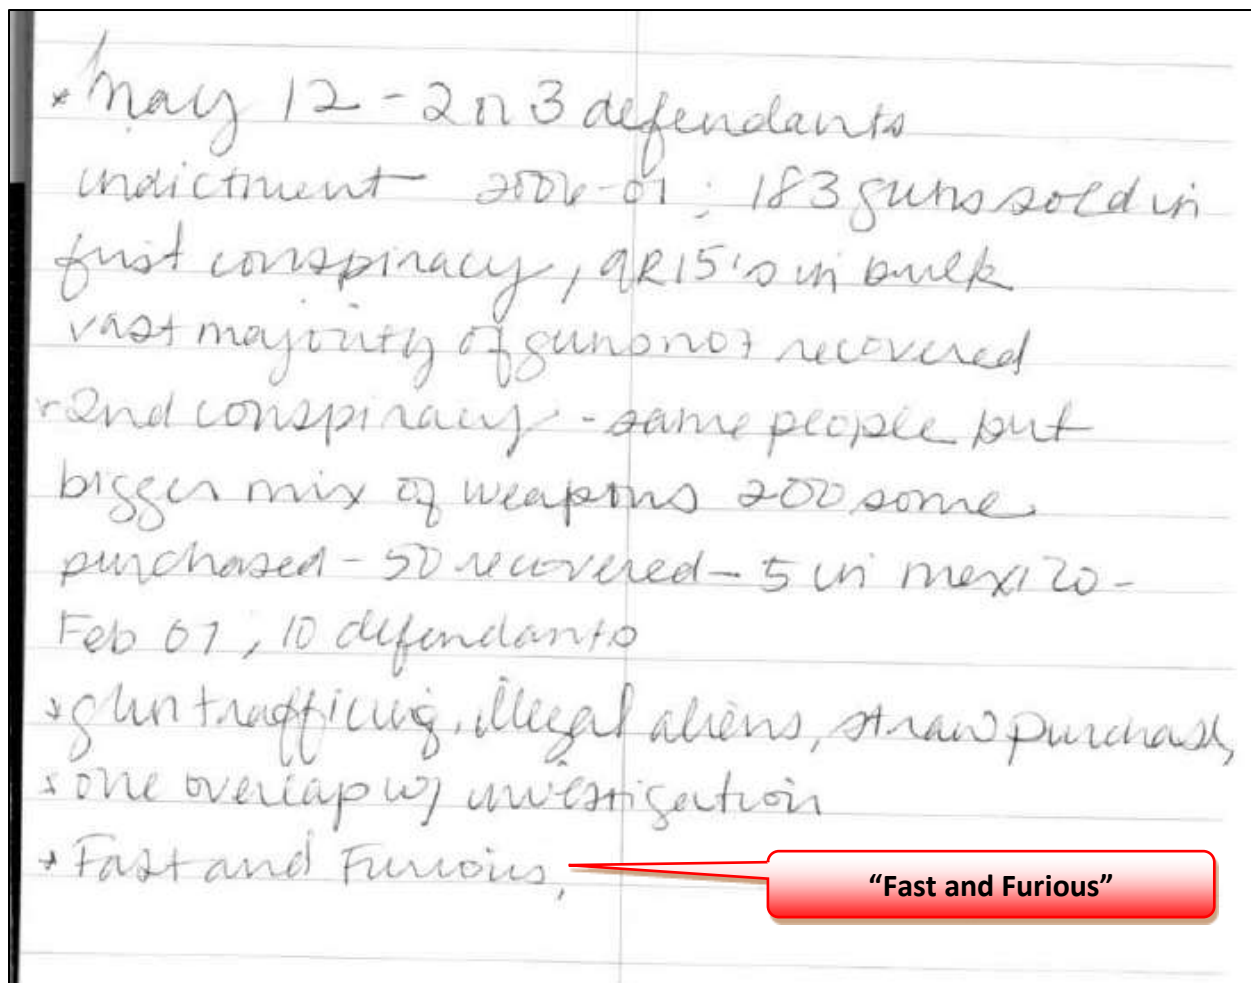 * May 12 - 2 or 3 defendants
indictment 2006-07; 183 guns sold in
first conspiracy, AR15's in bulk
vast majority of guns not recovered
2nd conspiracy - same people but
bigger mix of weapons 200 some
purchased - 50 recovered - 5 in mexico -
Feb 07, 10 defendants
* gun trafficing, illegal aliens, straw purchase,
* one overlap w/ investigation
* Fast and Furious,
“Fast and Furious”